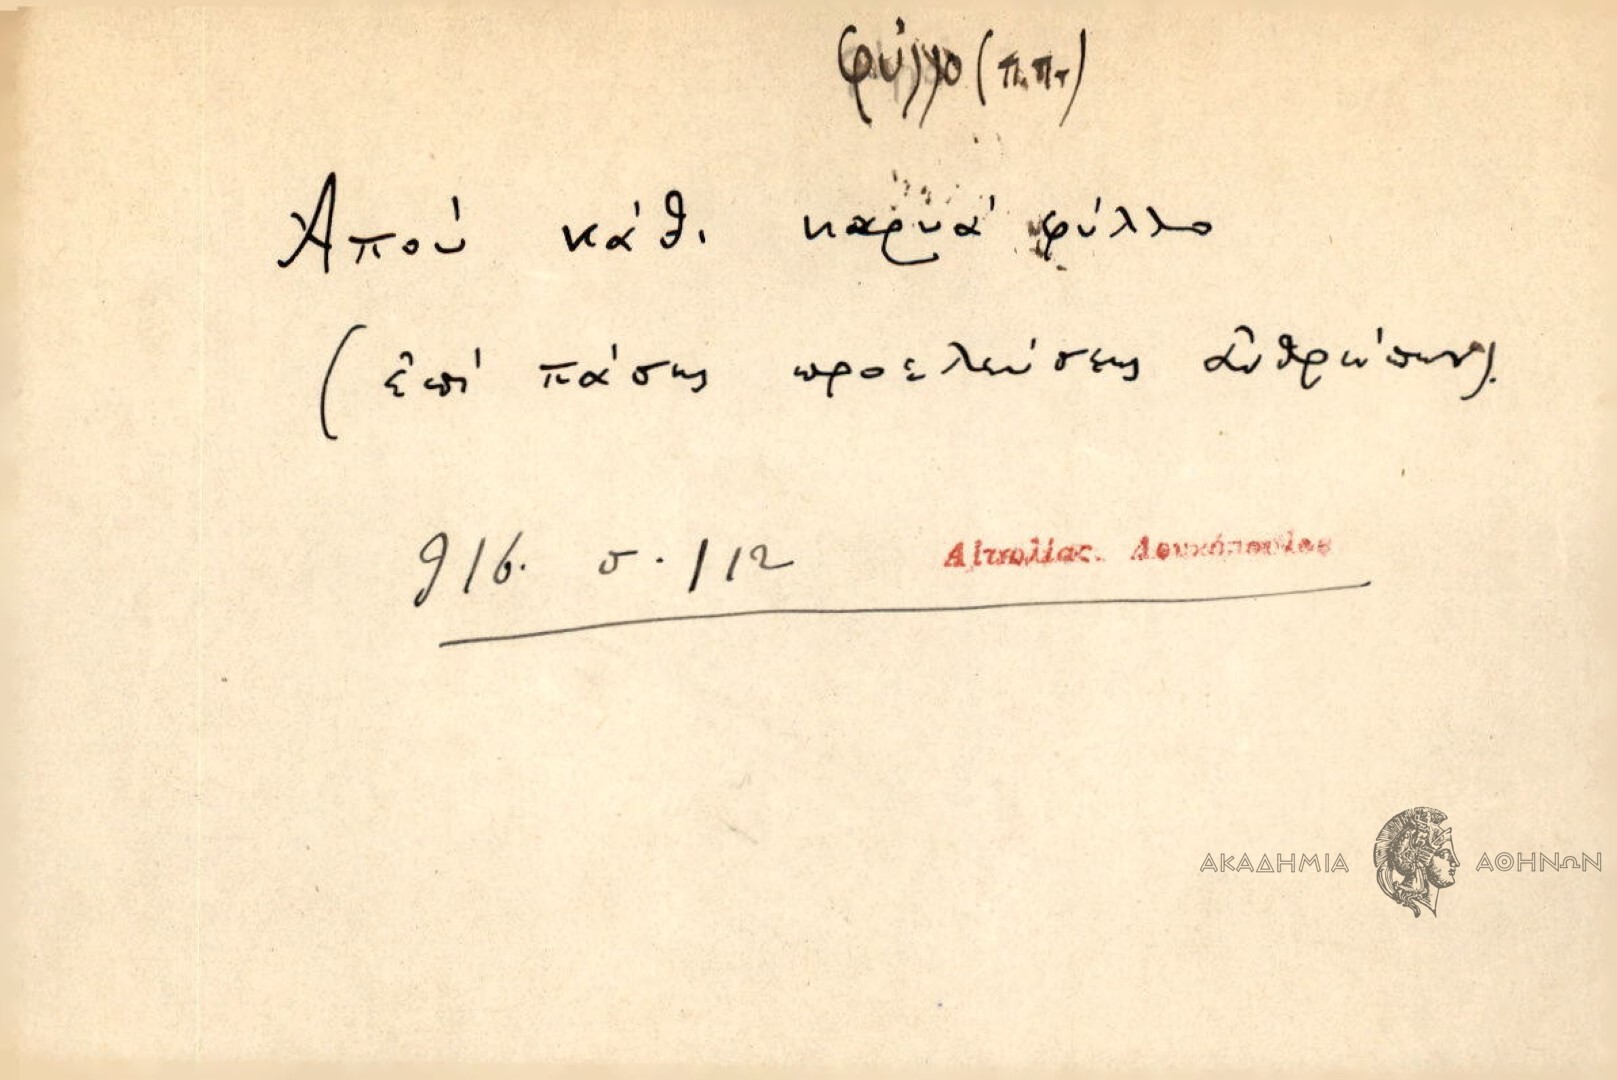 φύλλο (π.πτ)
Ἀπού κάθι καρυά φύλλο
(ἐπί πάσης προελεύσεως ἀνθρώπων).
916. σ. 112 Αἰτωλίας. Λουκόπουλος
ΑΚΑΔΗΜΙΑ ΑΘΗΝΩΝ